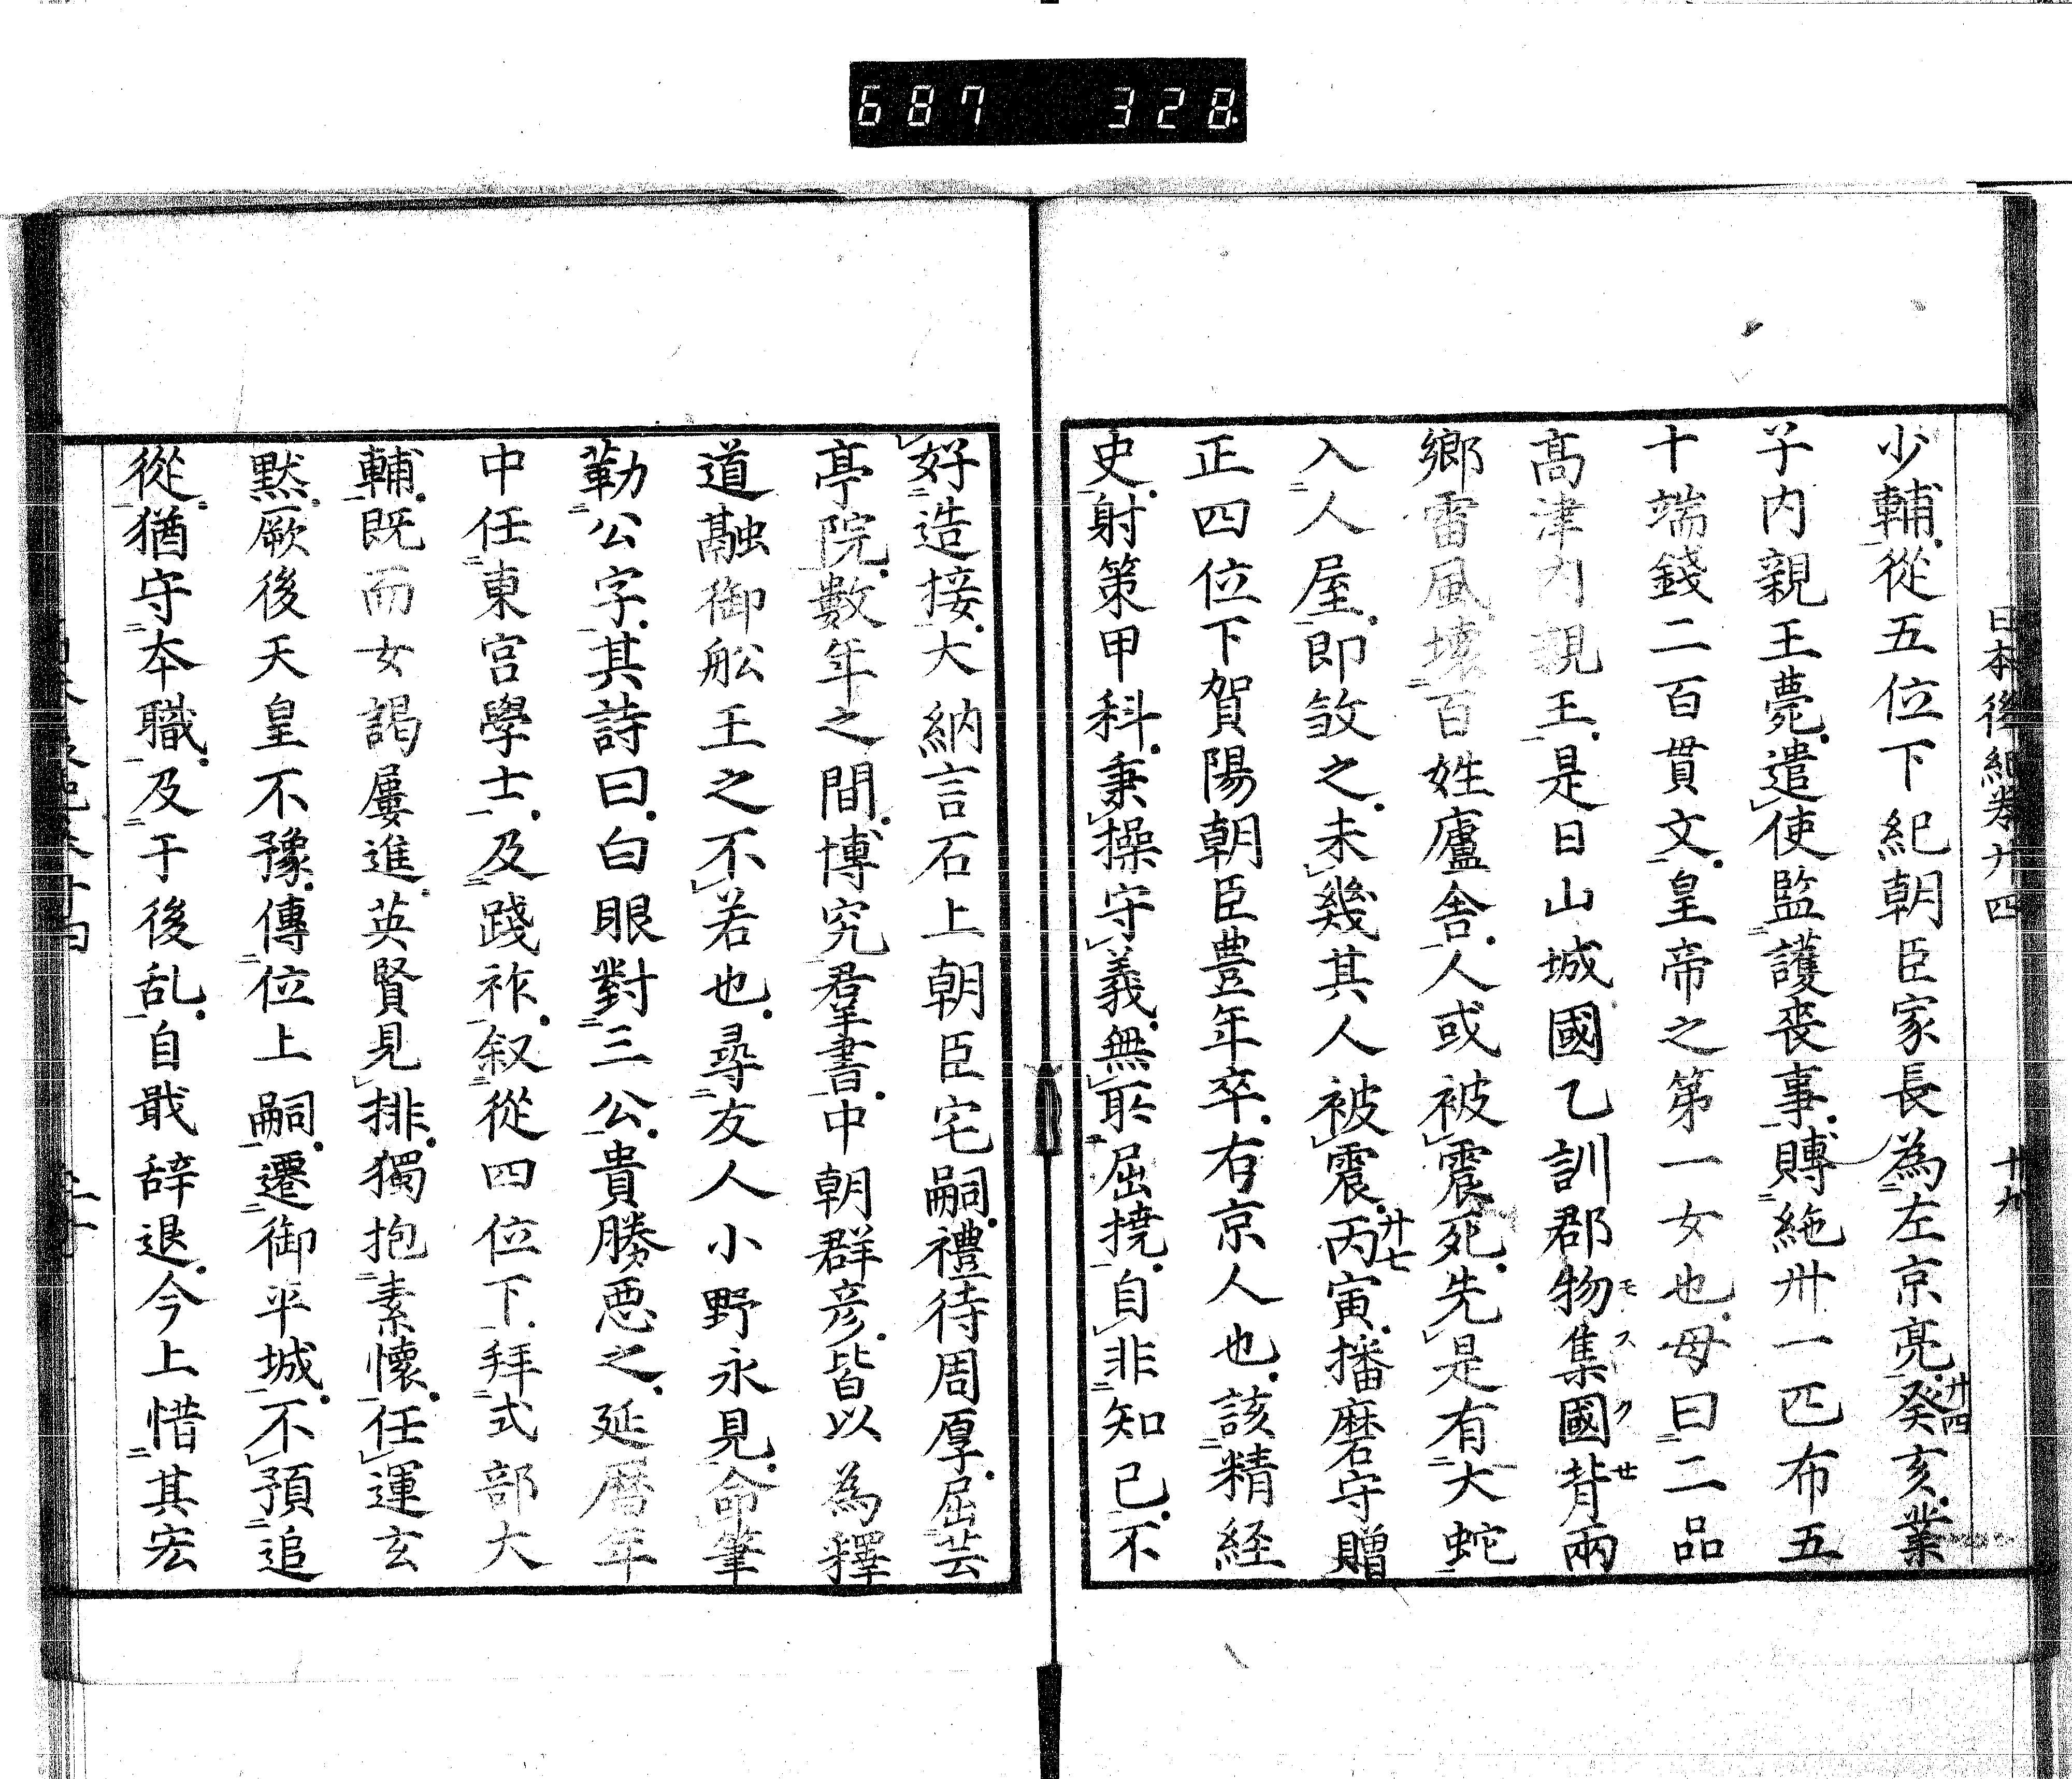 687 328
日本後紀卷廿四 十九
少輔從五位下紀朝臣家長為左京亮廿四癸亥業
子内親王薨遣使監護喪事賻絁卅一匹布五
十端錢二百貫文皇帝之第一女也母曰二品
髙津内親王是日山城國乙訓郡物集國背兩
モスクせ
鄉雷風壞百姓廬舍人或被震死先是有大蛇
入人屋即敛之未幾其人被震廿七丙寅播磨守贈
正四位下賀陽朝臣豊年卒右京人也該精経
史射策甲科秉操守義無所屈撓自非知己不
好造接大納言石上朝臣宅嗣禮待周厚屈芸
亭院數年之間博究羣書中朝群彦皆以為釋
道融御舩王之不若也尋友人小野永見命筆
勒公字其詩曰白眼對三公貴勝悪之延暦年
中任東宮學士及踐祚叙從四位下拜式部大
輔既而女謁屢進英賢見排獨抱素懷任運玄
黙厥後天皇不豫傳位上嗣遷御平城不預追
從猶守夲職及于後乱自戢辞退今上惜其宏